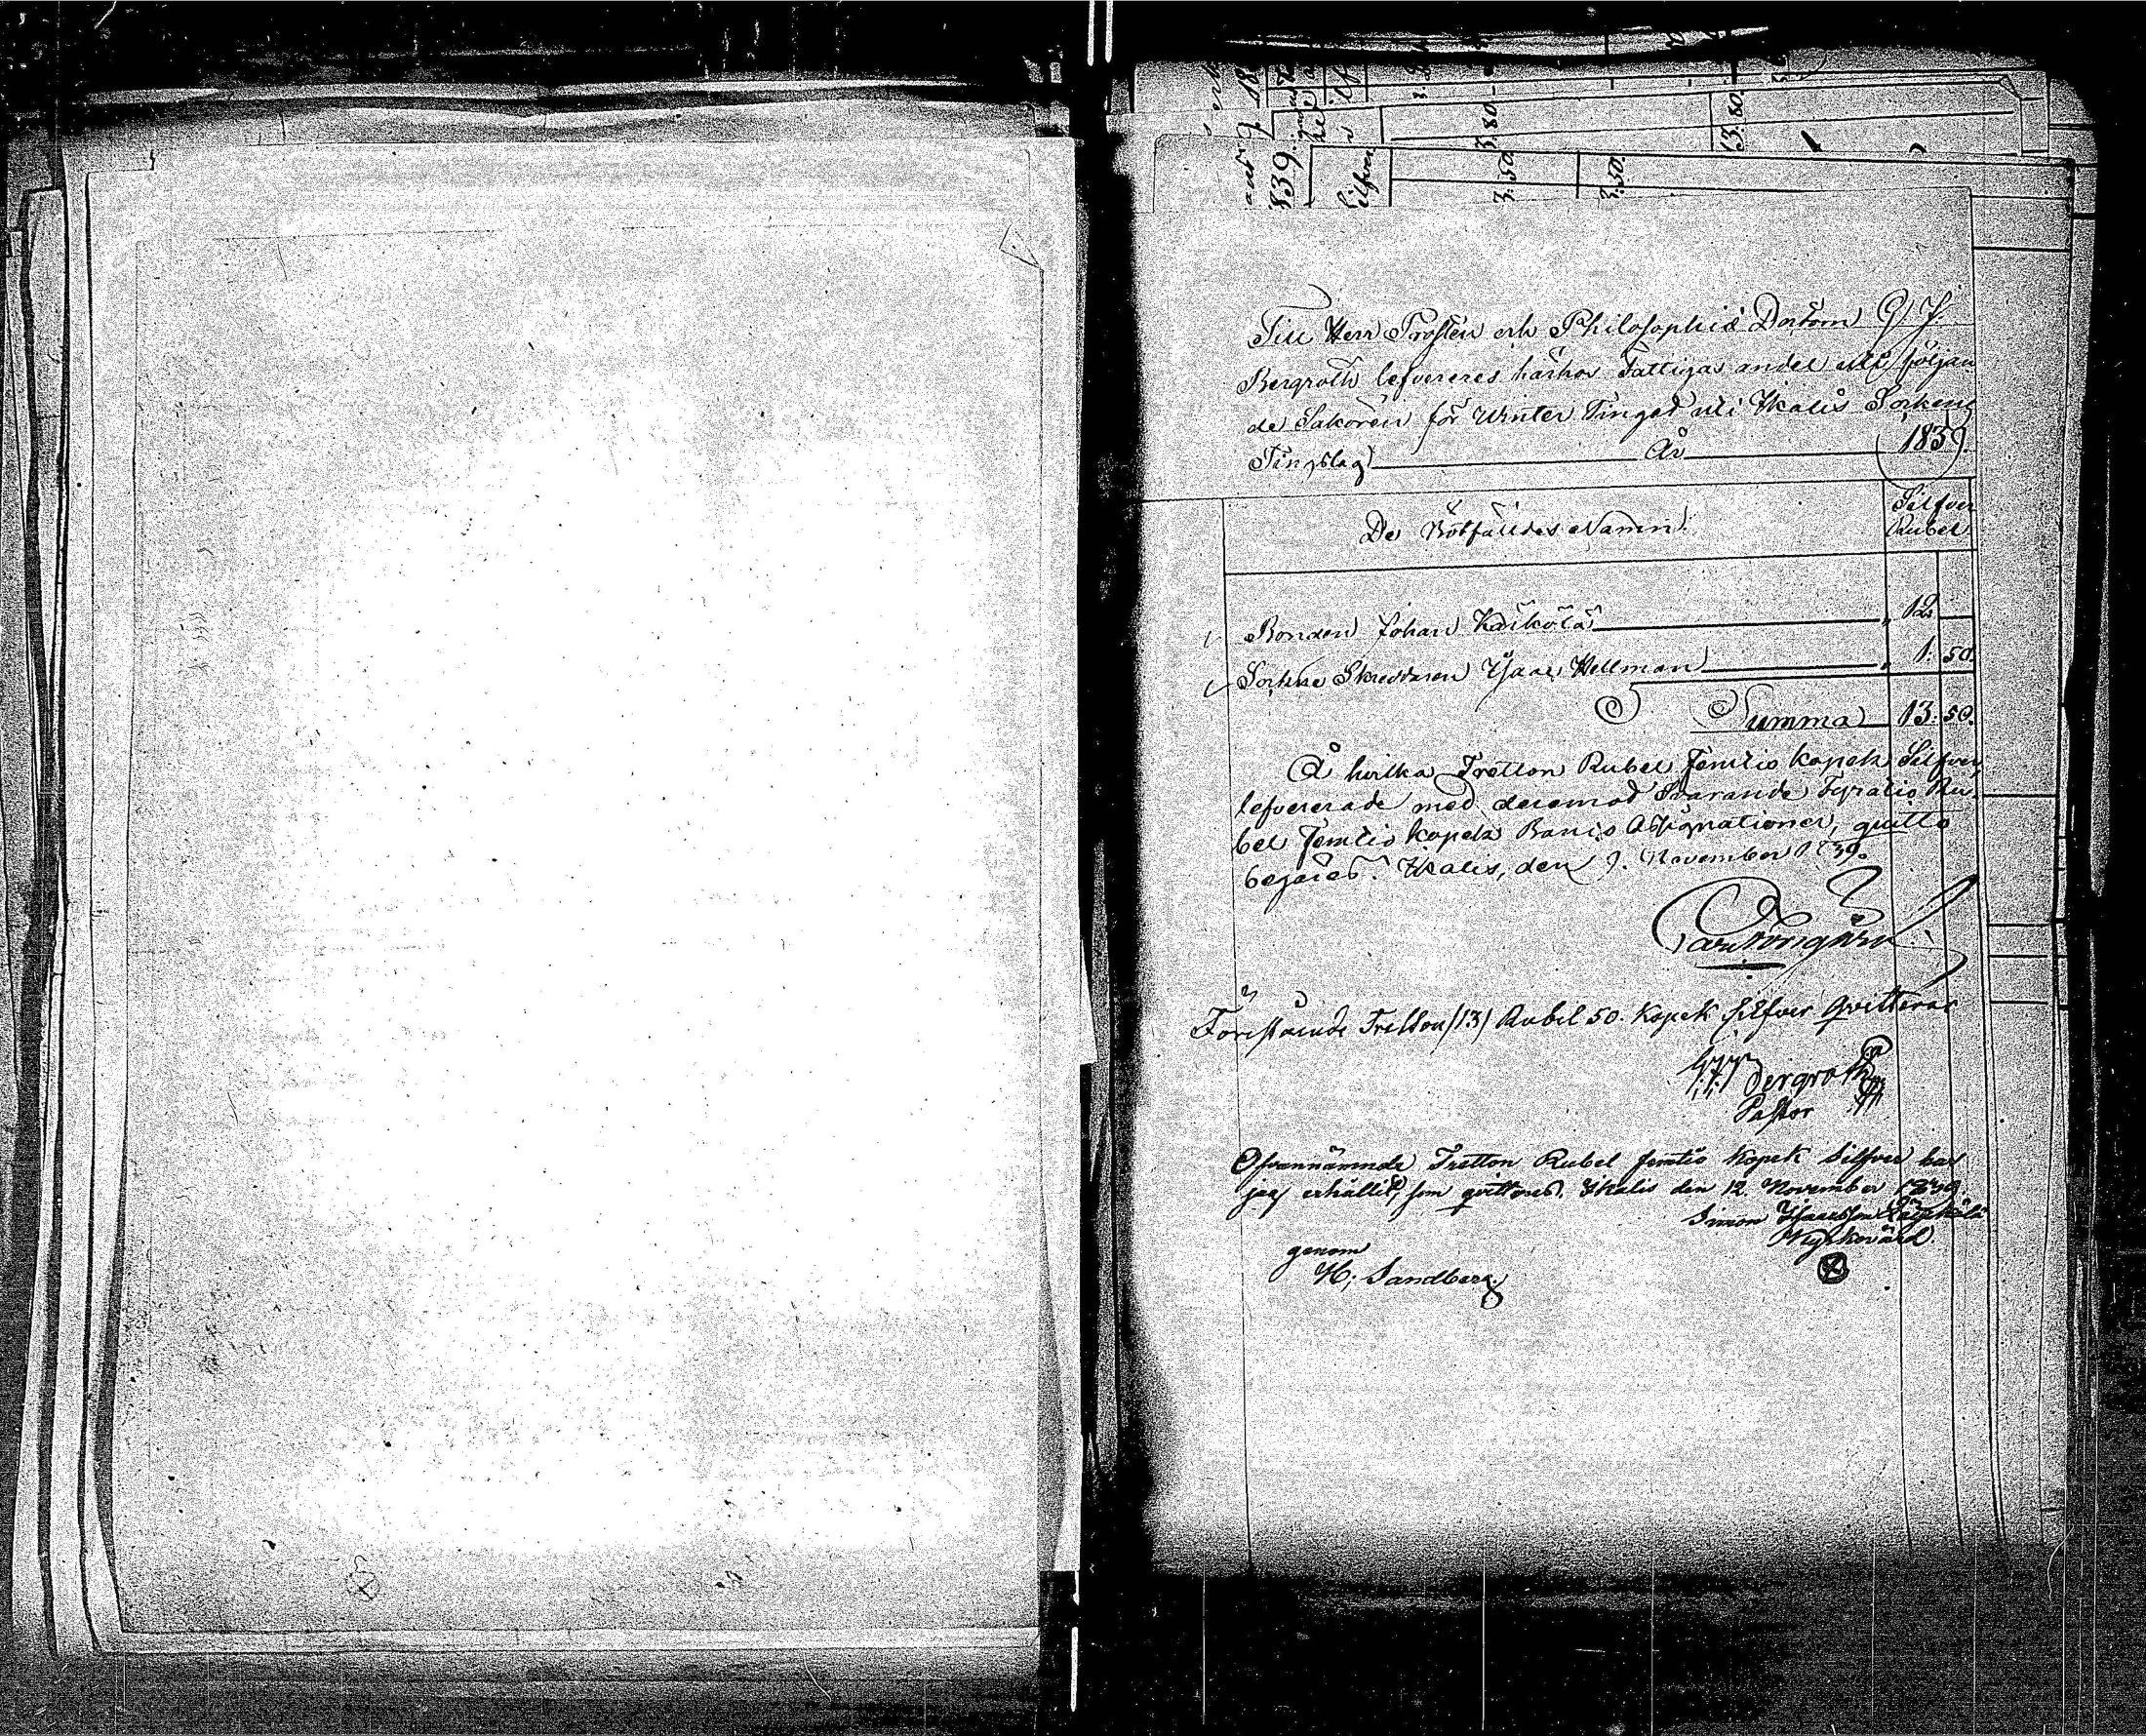 Till Herr Prosten och Philosophiæ Doctorn G J.
Bergroth lefvereres härhos Fattigas andel utaf följan
de Sakören för Winter Tinget uti Ikalis Sockens
Tingslag År 1839.
De Bötfälldes Namn.
Silfver
Rubel
Bonden Johan 12.
Sockne Skreddaren Isaac Hellman 1. 50.
Summa 13: 50.
Å hvilka Tretton Rubel femtio kopek Silfver,
lefvererade med deremot Svarande Ru-
bel femtio kopek Banco Assignationer, quitto
begäres. Ikalis, den 9. November 1839.
Förestående Tretton /13/ Rubel 50. Kopek Silfver qvitteras
G. J. Bergroth
Pastor
Ofvannämnde Tretton Rubel femtio kopek Silfver har
jag erhållit, som qvitteras. Ikalis den 12. November 1839
Simon Isaacsson
Kyrkovärd.
genom
H. Sandberg
839.
Silfver
3. 80
13. 80.
3. 50
3. 50.